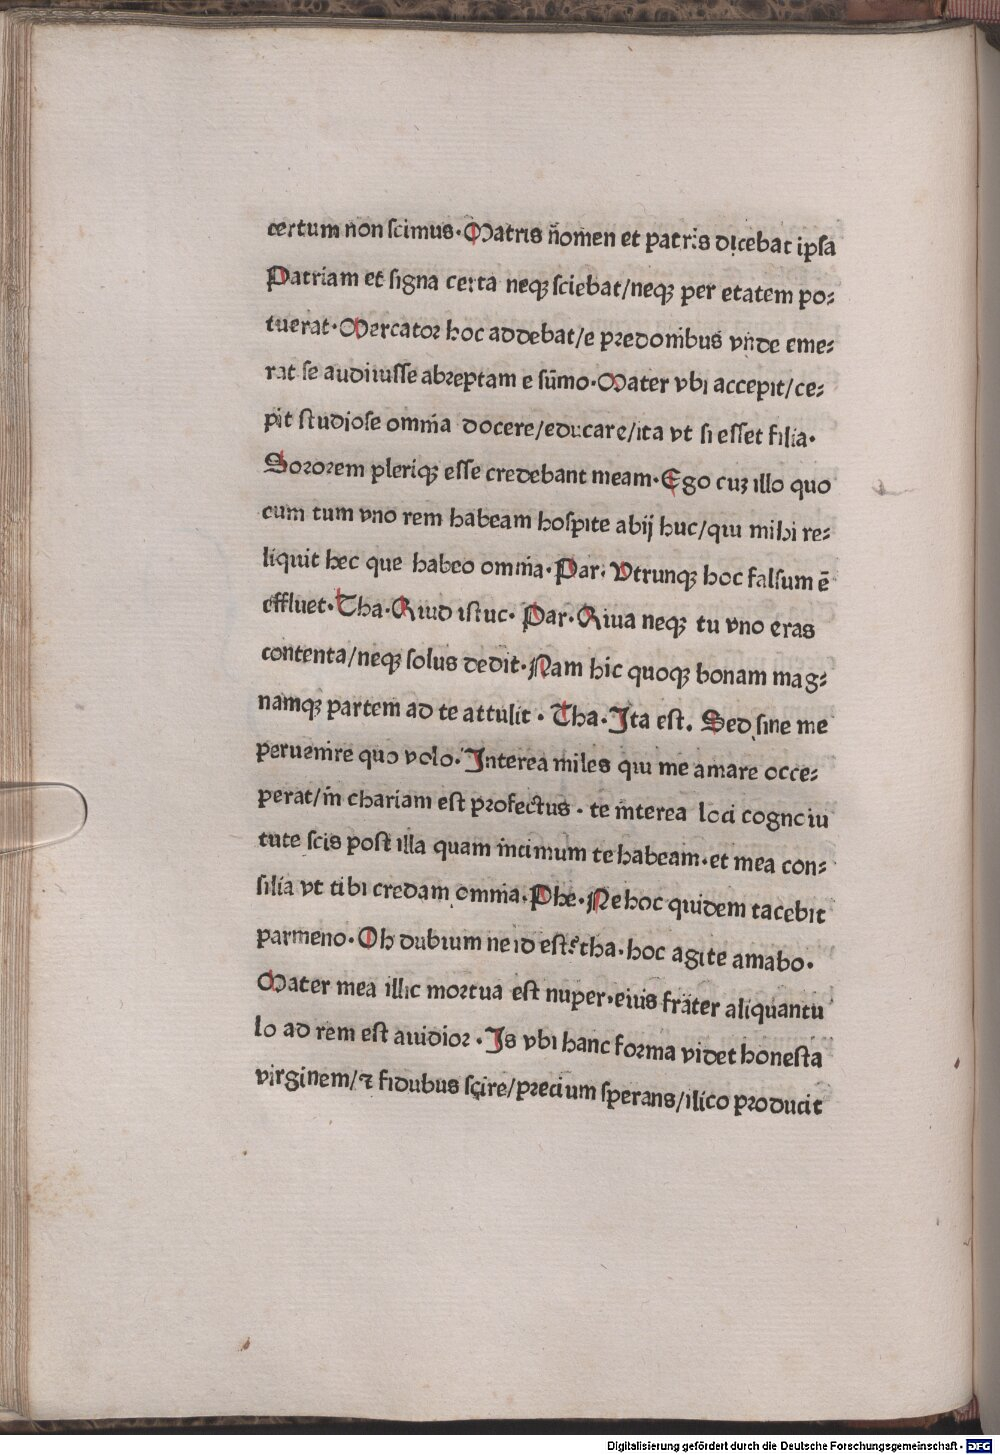 certum non scimus·Matris n̄omen et patris dicebat ipsa
Patriam et signa certa neqꝫ sciebat/neqꝫ per etatem po⸗
tuerat·Mercator hoc addebat/e predonibus vnde eme⸗
rat se audiuisse abreptam e sūmo·Mater vbi accepit/ce⸗
pit studiose omnia docere/educare/ita vt si esset filia·
Sororem pleriqꝫ esse credebant meam·Ego cuꝫ illo quo
cum tum vno rem habeam hospite abij huc/qui mihi re⸗
liquit hec que habeo omnia·Par·Vtrunqꝫ hoc falsum ē
effluet·Tha·Quid istuc·Par·Quia neqꝫ tu vno eras
contenta/neqꝫ solus dedit·Nam hic quoqꝫ bonam mag⸗
namqꝫ partem ad te attulit·Tha·Ita est. Sed sine me
peruenire quo volo·Interea miles qui me amare occe⸗
perat/in chariam est profectus·te interea loci cognoui
tute scis post illa quam intimum te habeam·et mea con⸗
silia vt tibi credam omnia·Phe·Ne hoc quidem tacebit
parmeno·Oh dubium ne id est?tha·hoc agite amabo·
Mater mea illic mortua est nuper·eius frater aliquantu
lo ad rem est auidior·Is vbi hanc forma videt honesta
virginem/⁊ fidubus scire/precium sperans/ilico producit
Digitalisierung gefördert durch die Deutsche Forschungsgemeinschaft - DFG